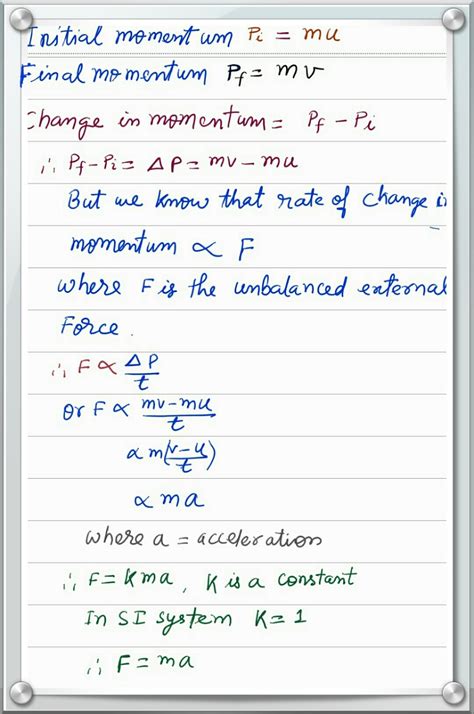 Initial momentum Pi = mu
Final momentum Pf = mv
Change in momentum = Pf - Pi
∴ Pf-Pi = ΔP = mv - mu
But we know that rate of change i
momentum ∝ F
where F is the unbalanced external
Force.
∴ F ∝ ΔP/t
or F ∝ mv-mu/t
∝ m(v-u/t)
∝ ma
where a = acceleration
∴ F = Kma, K is a constant
In SI system K = 1
∴ F = ma